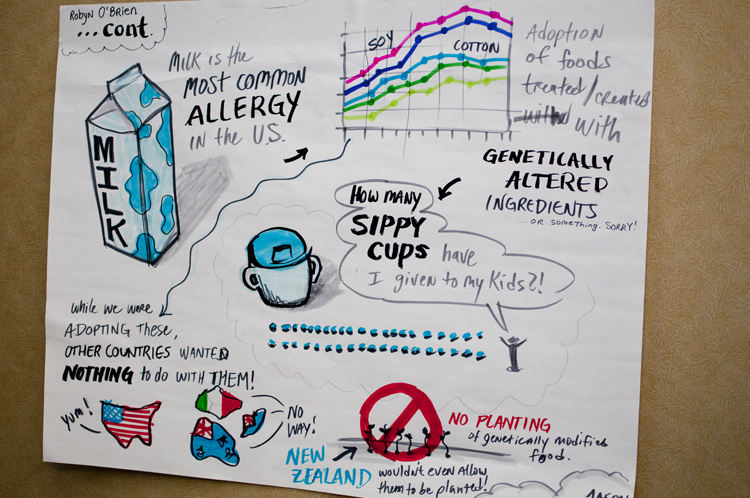 Robyn O'Brien
...cont.
Milk is the
MOST COMMON
ALLERGY
in the U.S.
MILK
SOY
COTTON
Adoption
of foods
treated/created
with
GENETICALLY
ALTERED
INGREDIENTS
...or something. SORRY!
HOW MANY
SIPPY
CUPS have
I given to my Kids?!
while we were
ADOPTING These,
OTHER COUNTRIES WANTED
NOTHING to do WITH THEM!
YUM!
NO
WAY!
NEW
ZEALAND
wouldn't even Allow
them to be planted!
NO PLANTING
of genetically modifies
food.